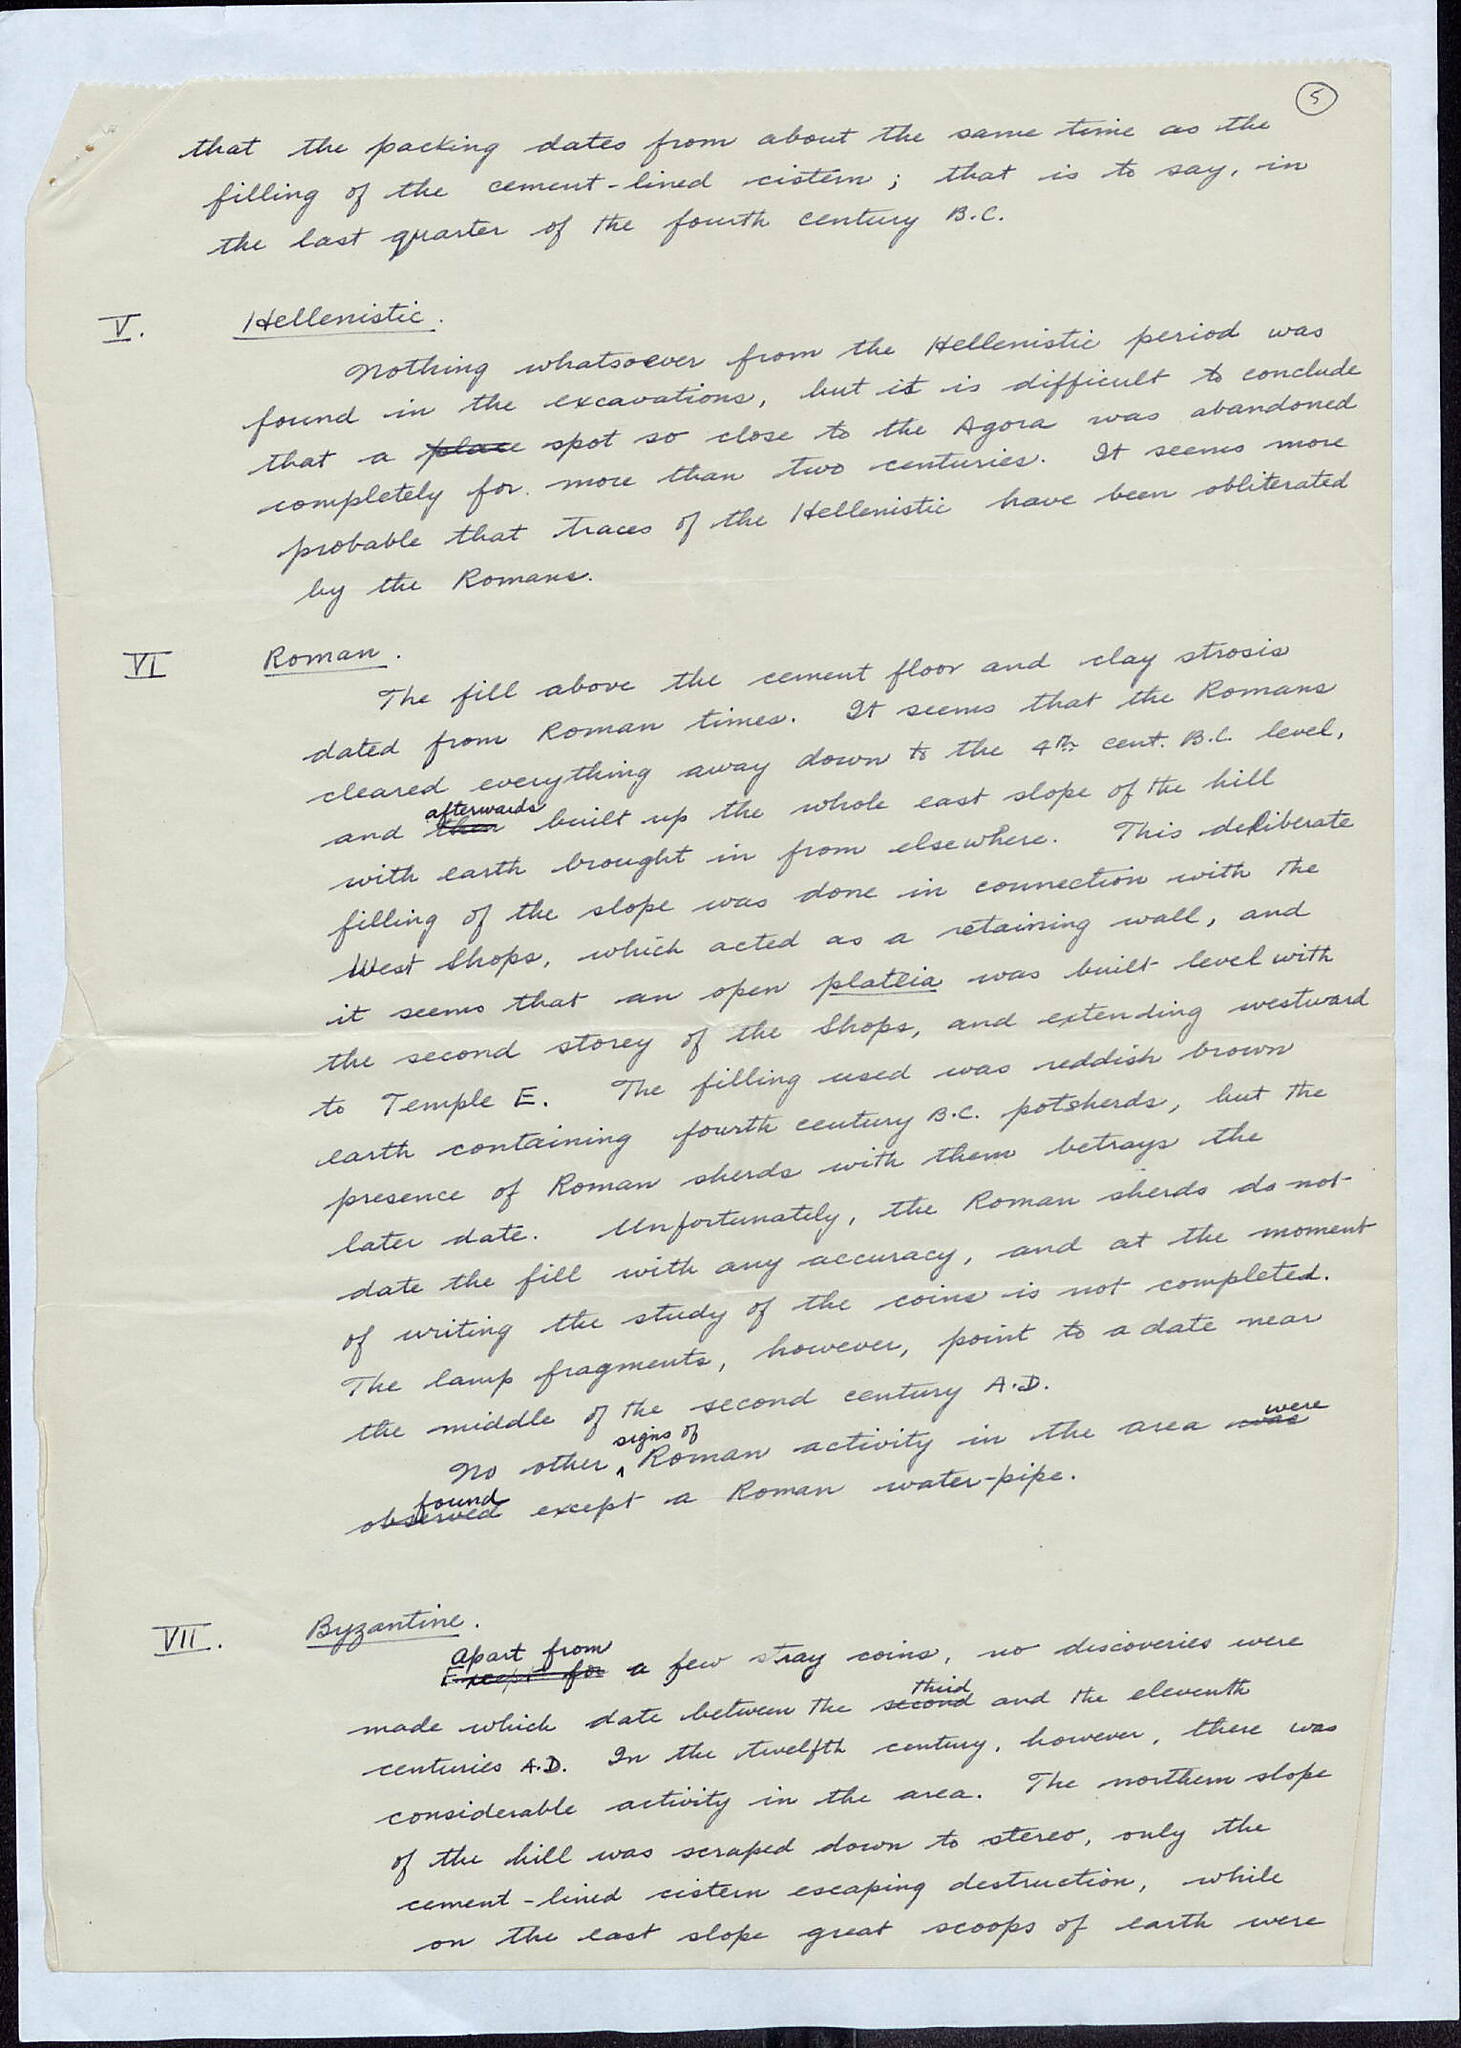 5
that the packing dates from about the same time as the
filling of the cement-lined cistern; that is to say, in
the last quarter of the fourth century B.C.
V. Hellenistic.
Nothing whatsoever from the Hellenistic period was
found in the excavations, but it is difficult to conclude
that a place spot so close to the Agora was abandoned
completely for more than two centuries. It seems more
probable that traces of the Hellenistic have been obliterated
by the Romans.
VI Roman.
The fill above the cement floor and clay strosis
dated from Roman times. It seems that the Romans
cleared everything away down to the 4th cent. B.C. level,
afterwards
and then built up the whole east slope of the hill
with earth brought in from elsewhere. This deliberate
filling of the slope was done in connection with the
West Shops, which acted as a retaining wall, and
it seems that an open plateia was built level with
the second storey of the Shops, and extending westward
to Temple E. The filling used was reddish brown
earth containing fourth century B.C. potsherds, but the
presence of Roman sherds with them betrays the
later date. Unfortunately, the Roman sherds do not
date the fill with any accuracy, and at the moment
of writing the study of the coins is not completed.
The lamp fragments, however, point to a date near
the middle of the second century A.D.
signs of were
No other Roman activity in the area was
found
observed except a Roman water-pipe.
VII. Byzantine.
Apart from
Except for a few stray coins, no discoveries were
third
made which date between the second and the eleventh
centuries A.D. In the twelfth century, however, there was
considerable activity in the area. The northern slope
of the hill was scraped down to stereo, only the
cement-lined cistern escaping destruction, while
on the east slope great scoops of earth were